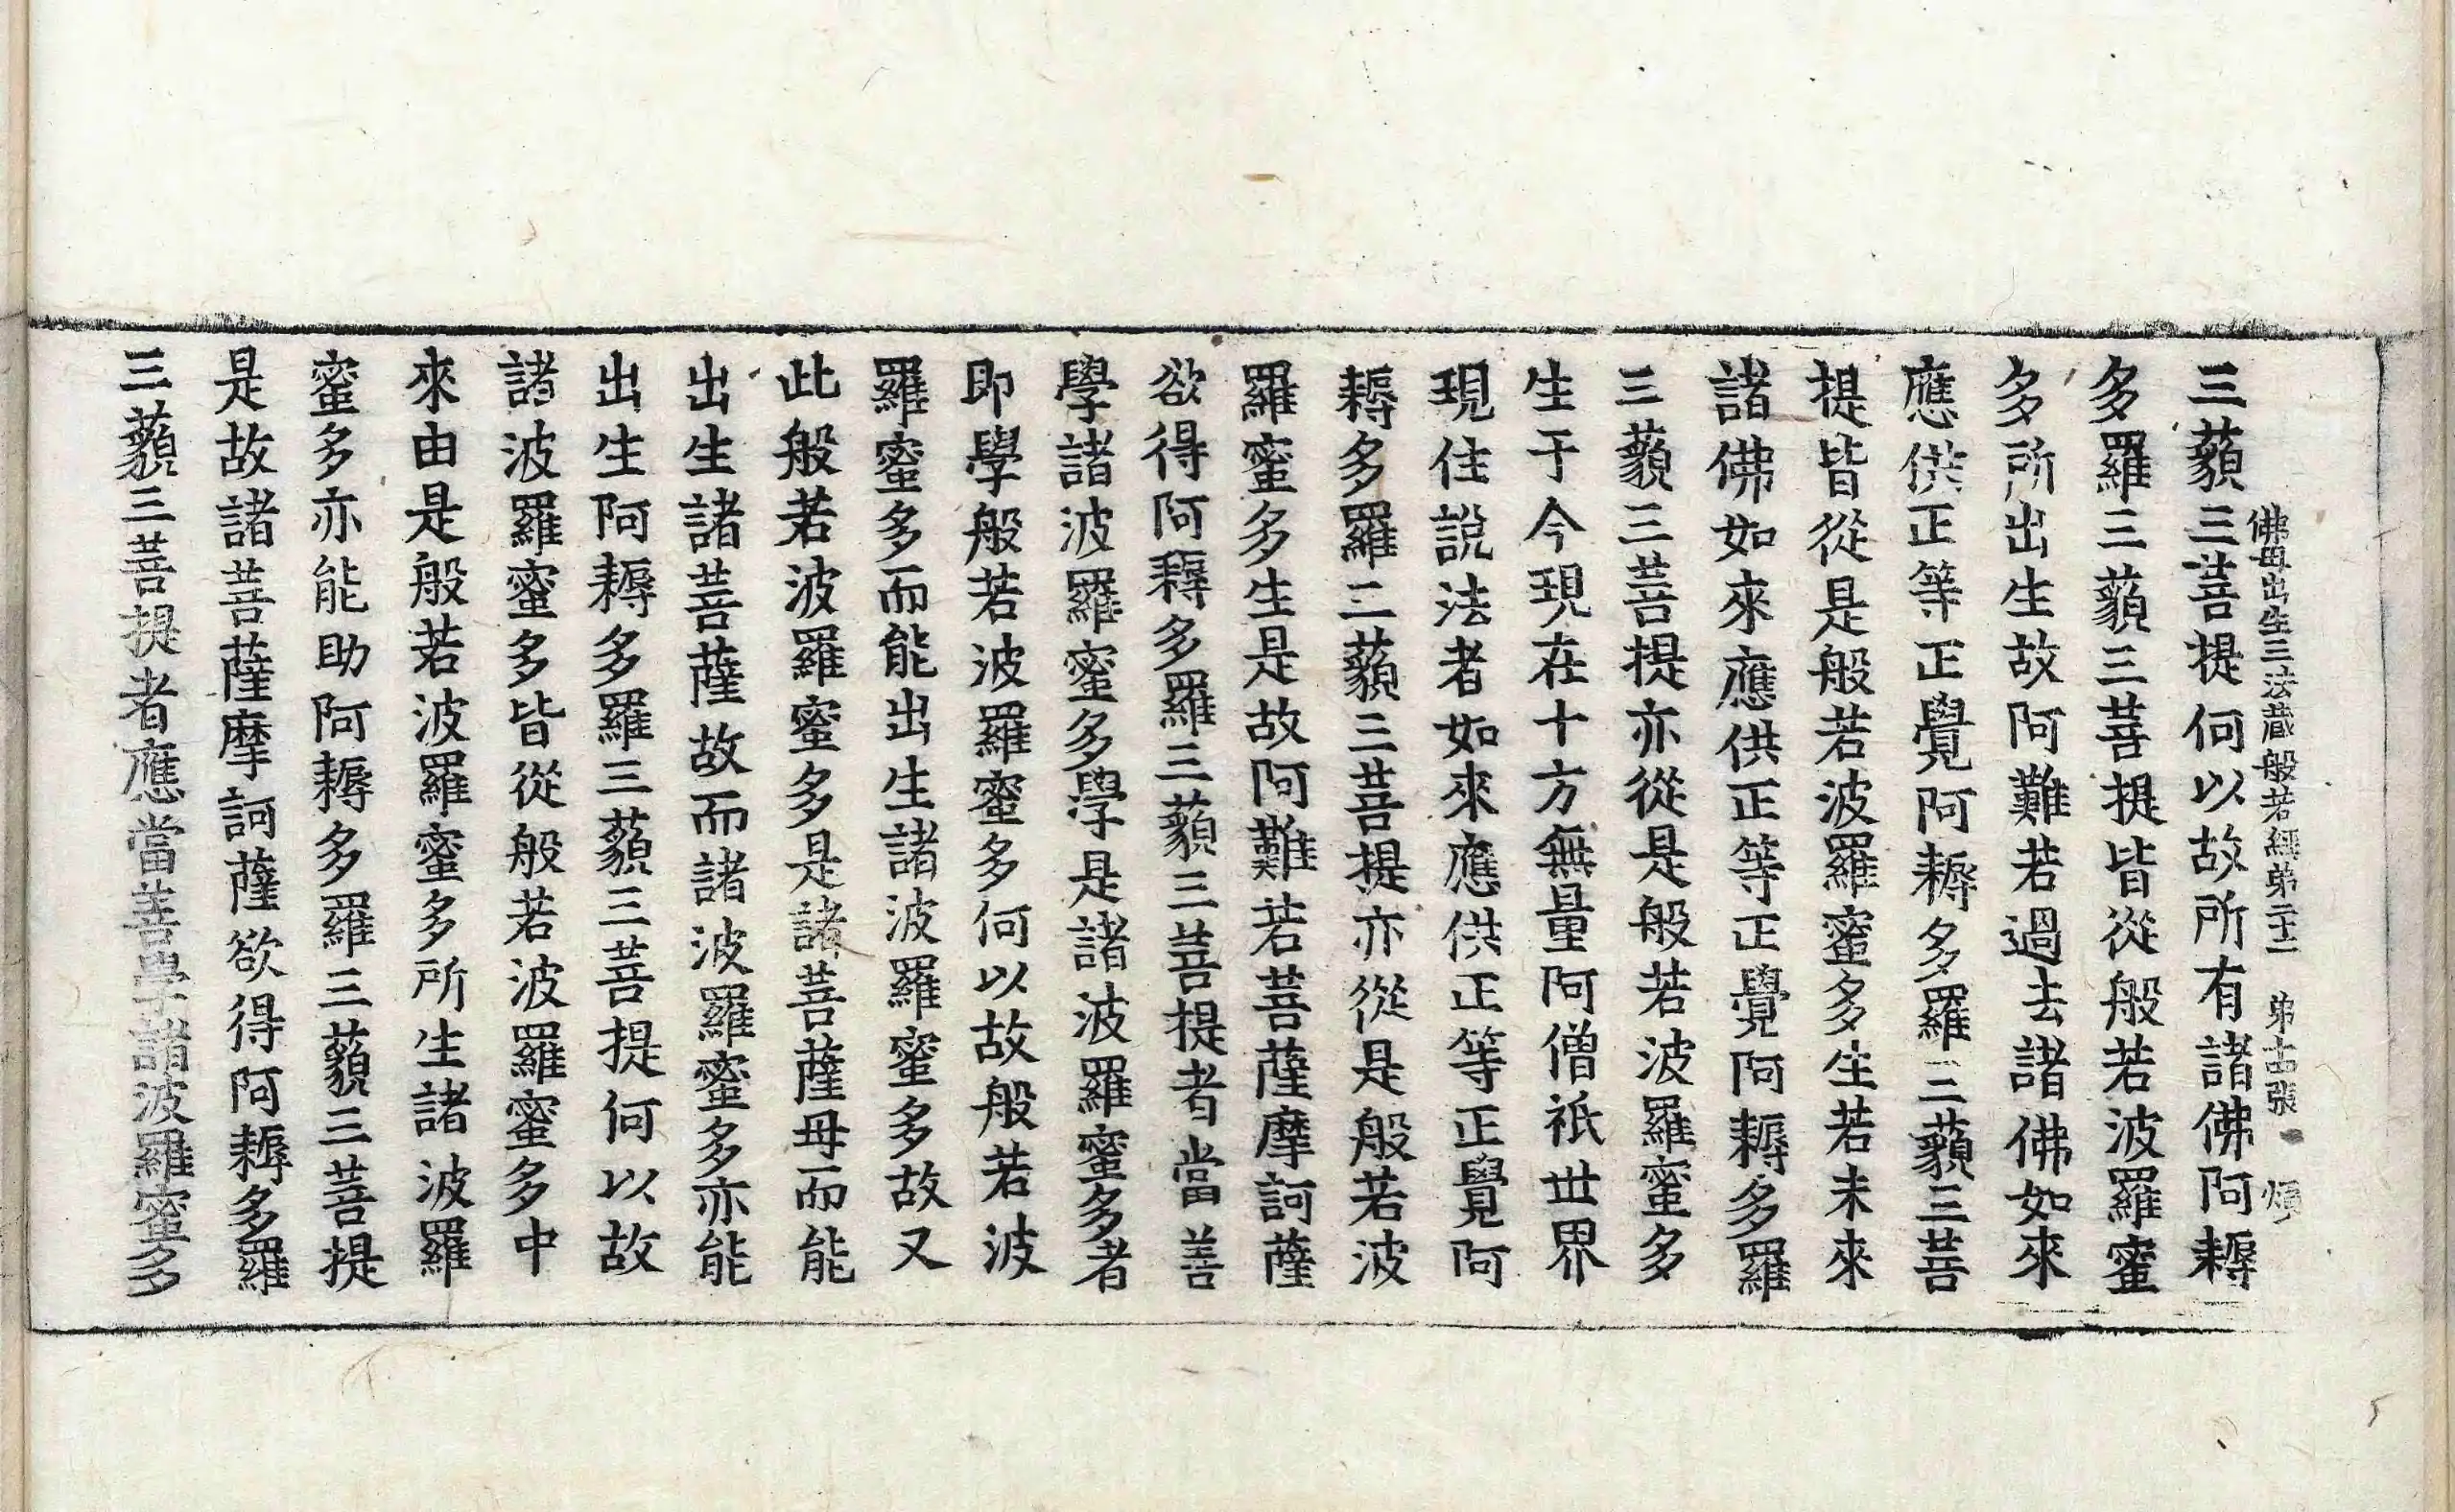 三藐三菩提何以故所有諸佛阿耨
佛母出生三法藏般若經第二十二　第十四張　煩
多羅三藐三菩提皆從般若波羅蜜
多所出生故阿難若過去諸佛如來
應供正等正覺阿耨多羅三藐三菩
提皆從是般若波羅蜜多生若未來
諸佛如來應供正等正覺阿耨多羅
三藐三菩提亦從是般若波羅蜜多
生于今現在十方無量阿僧祇世界
現住說法者如來應供正等正覺阿
耨多羅三藐三菩提亦從是般若波
羅蜜多生是故阿難若菩薩摩訶薩
欲得阿耨多羅三藐三菩提者當善
學諸波羅蜜多學是諸波羅蜜多者
即學般若波羅蜜多何以故般若波
羅蜜多而能出生諸波羅蜜多故又
此般若波羅蜜多是諸菩薩母而能
出生諸菩薩故而諸波羅蜜多亦能
出生阿耨多羅三藐三菩提何以故
諸波羅蜜多皆從般若波羅蜜多中
來由是般若波羅蜜多所生諸波羅
蜜多亦能助阿耨多羅三藐三菩提
是故諸菩薩摩訶薩欲得阿耨多羅
三藐三菩提者應當善學諸波羅蜜多